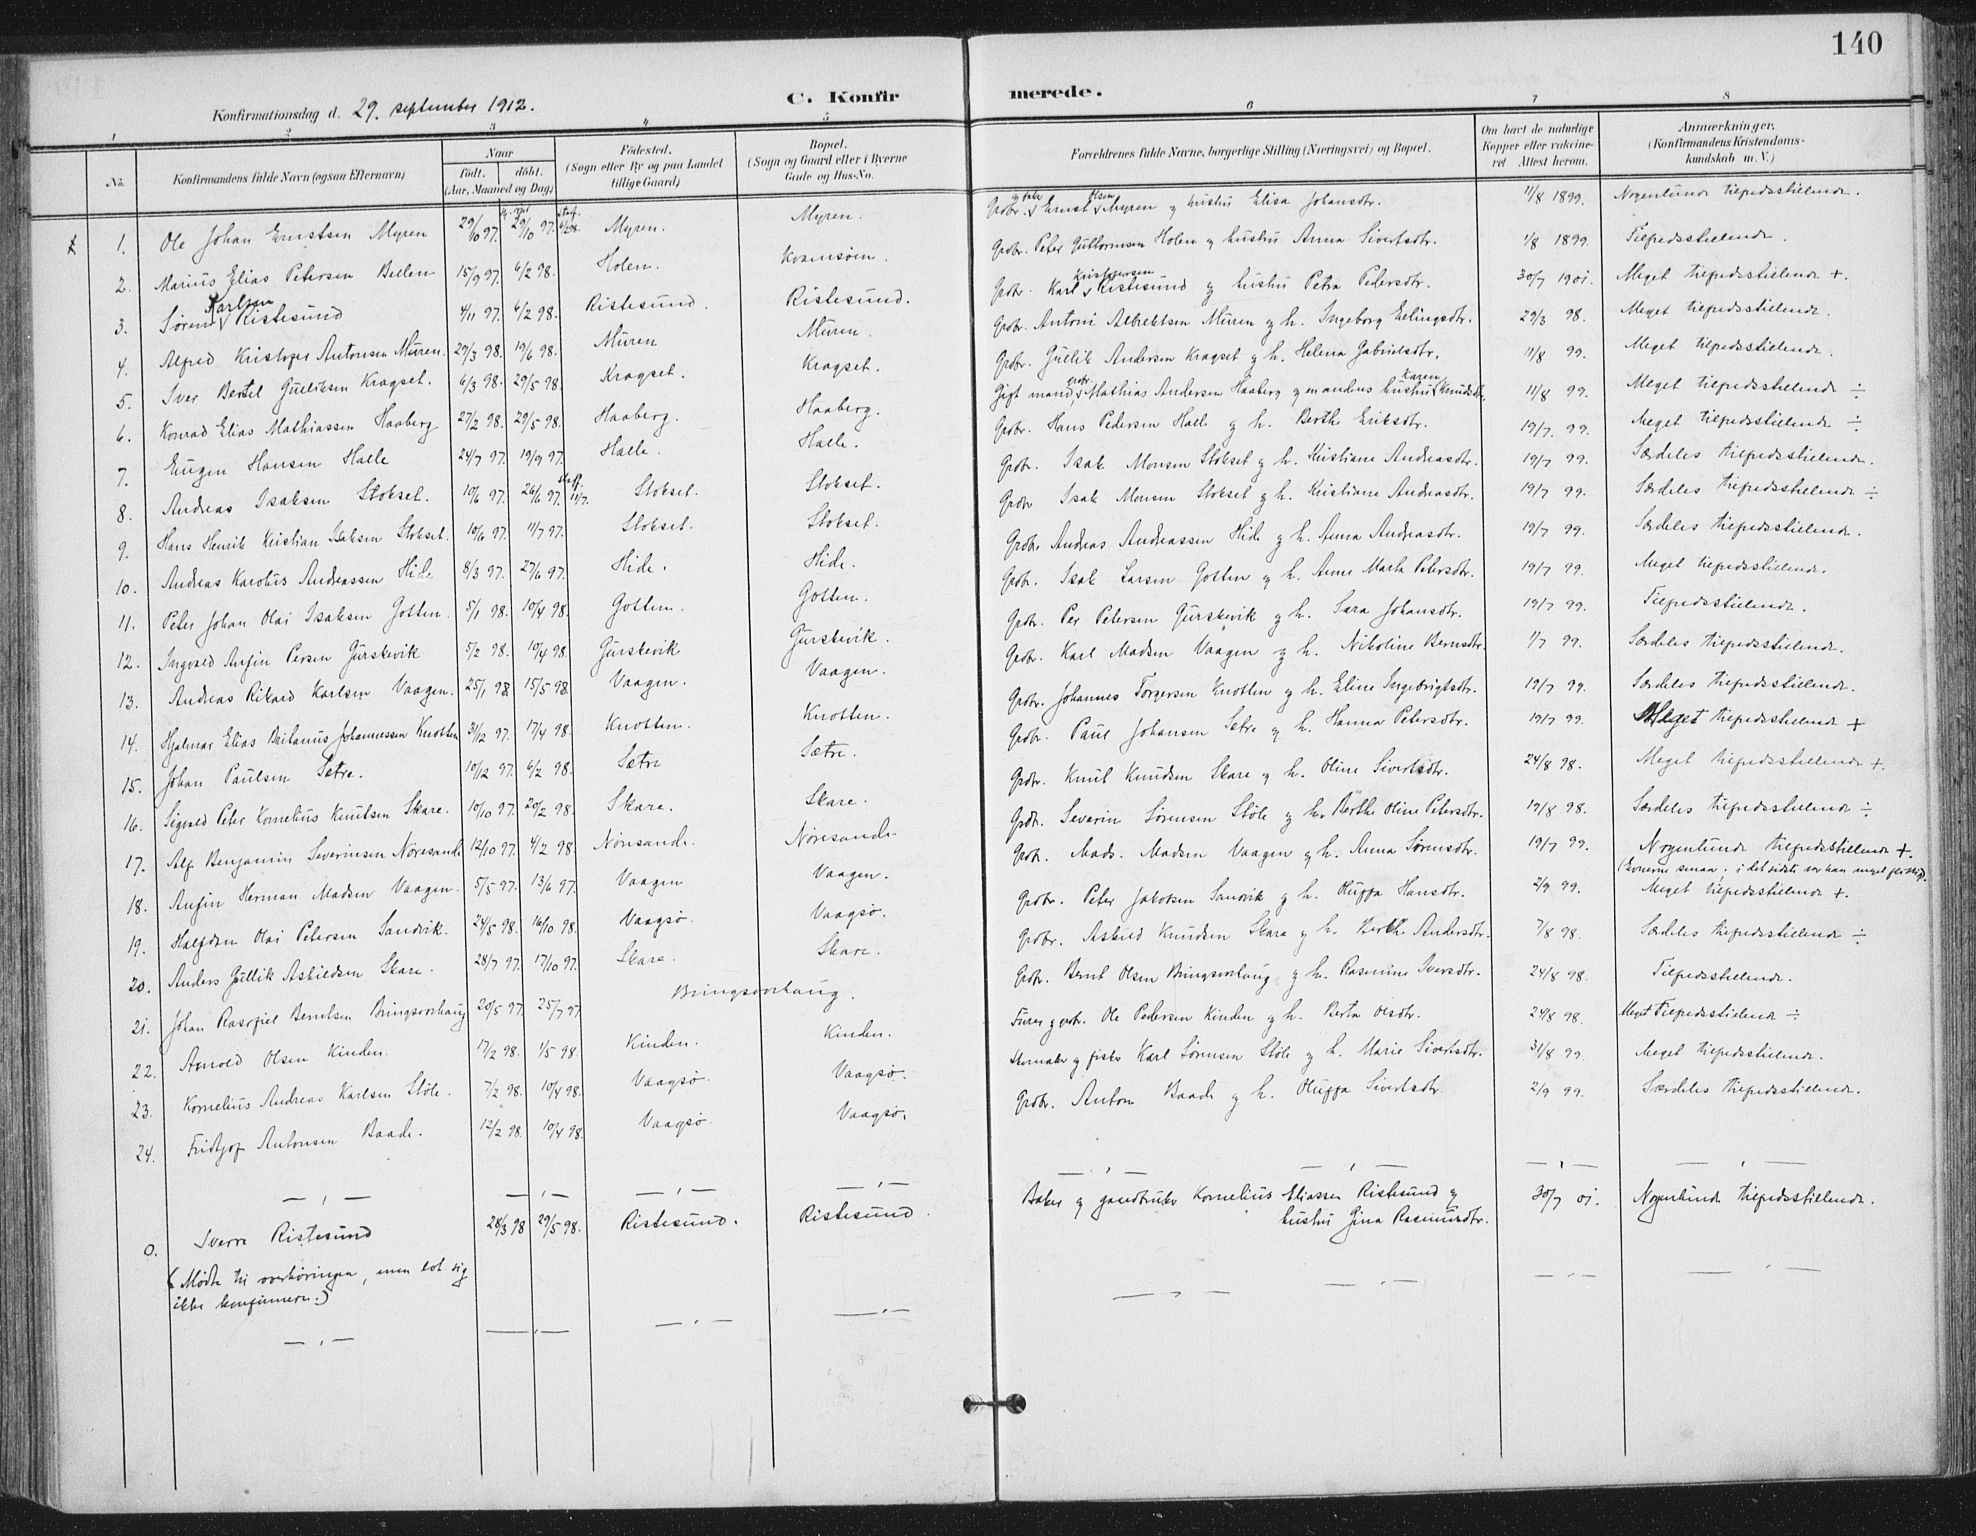 140
Konfirmationsdag d. 29. september 1912.
C. Konfirmerede.
1 2 3 4 5 6 7 8
No. Konfirmandens fulde Navn (ogsaa Efternavn) Naar født. døbt. (Aar, Maaned og Dag) Fødested. (Sogn eller By og paa Landet tillige Gaard) Bopæl. (Sogn og Gaard eller i Byerne Gade og Hus-No. Forældrenes fulde Navne, borgerlige Stilling (Næringsvei) og Bopæl. Om havt de naturlige Kopper eller vakcineret Attest herom. Anmærkninger. (Konfirmandens Kristendomskundskab m. V.)
1. Ole Johan Ernstsen Myren 29/10 97. 29/10 97. Myren. Myren. Grdbr. Ernst Olsen Myren og hustru Elisa Johansdtr. 11/8 1899. Nogenlunde tilfredsstillende.
2. Marius Elias Petersen Holen 15/9 97. 6/2 98. Holen. Kvamsøen. Grdbr. Peter Guttormsen Holen og hustru Anna Sivertsdtr. 1/8 1899. Tilfredsstillende.
3. Søren Karlsen Ristesund 4/11 97. 6/2 98. Ristesund. Ristesund. Grdbr. Karl Kristoffersen Ristesund og hustru Petra Pedersdtr. 30/7 1901. Meget tilfredsstillende +.
4. Alfred Kristofer Antonsen Muren. 29/3 98. 19/6 98. Muren Muren. Grdbr. Antoni Albrektsen Muren og h. Ingeborg Erlingsdtr. 29/3 98. Meget tilfredsstillende.
5. Iver Bertil Gulliksen Kragset. 6/3 98. 29/5 98. Kragset. Kragset. Grdbr. Gullik Andersen Kragset og h. Helena Gabrielsdtr. 11/8 99. Meget tilfredsstillende.
6. Konrad Elias Mathiassen Haaberg 27/2 98. 29/5 98. Haaberg. Haaberg. Gift mand, grdbr. Mathias Andersen Haaberg og en andens hustru Karen Knudsdtr. 11/8 99. Meget tilfredsstillende ÷
7. Eugen Hansen Halle 24/7 97. 19/9 97. Halle. Halle. Grdbr. Hans Pedersen Halle og h. Berthe Eriksdtr. 19/7. 99. Meget tilfredsstillende ÷
8. Andreas Isaksen Stokset. 10/6 97. 26/6 97. 11/7. Stokset. Stokset. Grdbr. Isak Monsen Stokset og h. Kristiane Andreasdtr. 19/7 99. Særdeles tilfredsstillende.
9. Hans Henrik Kristian Isaksen Stokset. 10/6 97. 11/7 97. Stokset. Stokset. Grdbr Isak Monsen Stokset og h. Kristiane Andreasdtr. 19/7 99. Særdeles tilfredsstillende ÷
10. Andreas Karolus Andreassen Hide 8/3 97. 27/6 97. Hide. Hide. Grdbr. Andreas Andreassen Hide og h. Anna Andreasdtr. 19/7 99. Særdeles tilfredsstillende.
11. Peter Johan Olai Isaksen Gotten. 5/1 98. 10/4 98. Gotten. Gotten. Grdbr. Isak Larsen Gotten og h. Anne Marta Petersdtr. 19/7 99. Meget tilfredsstillende.
12. Ingvald Anfin Persen Gurskevik 5/2 98. 10/4 98. Gurskevik Gurskevik. Grdbr. Per Petersen Gurskevik og h. Sara Johansdtr. 19/7 99. Tilfredsstillende.
13. Andreas Rikard Karlsen Vaagen. 25/1 98 15/5 98. Vaagen. Vaagen. Grdbr. Karl Madsen Vaagen og h. Nikoline Berntsdtr. 1/7 99. Særdeles tilfredsstillende.
14. Hjalmar Elias Johannessen Knotten 31/12 97. 17/4 98. Knotten. Knotten. Grdbr. Johannes Torgersen Knotten og h. Eline Ingebrigtsdtr. 19/7 99. Særdeles tilfredsstillende.
15. Johan Paulsen Sætre. 10/12 97. 6/2 98. Sætre Sætre. Grdbr. Paul Johansen Sætre og h. Hanna Petersdtr. 19/7 99. Meget tilfredsstillende +
16. Sigvald Peter Kornelius Knutsen Skare. 10/10 97. 20/2 98. Skare. Skare. Grdbr. Knut Knudsen Skare og h. Oline Sivertsdtr. 24/8 98. Meget tilfredsstillende +.
17. Alf Benjamin Severinsen Nøresande 12/10 97. 4/2 98. Nøresande. Nøresande Grdbr. Severin Sørensen Støle og h. Berthe Oline Petersdtr. 19/8 98. Særdeles tilfredsstillende ÷
18. Anfin Herman Madsen Vaagen. 5/5 97. 13/6 97. Vaagen Vaagen. Grdbr. Mads. Madsen Vaagen og h. Anna Sørensdtr. 19/7 99. Nogenlunde tilfredsstillende +.
(Evnerne smaa; i det sidste var han meget flittig).
19. Halfdan Olai Petersen Sandvik. 24/5 98. 16/10 98. Vaagsø Vaagsø. Grdbr. Peter Jakobsen Sandvik og h. Oluffa Hansdtr. 2/9 99. Meget tilfredsstillende +.
20. Anders Gullik Askildsen Skare. 28/7 97. 17/10 97. Skare. Skare. Grdbr. Askild Knudsen Skare og h. Berthe Andersdtr. 7/8 98. Særdeles tilfredsstillende ÷
21. Johan Rasofiel Berntsen Bringsvorhaug 20/5 97. 25/7 97. Bringsvorhaug. Grdbr. Bernt Olsen Bringsvorhaug og h. Rasmine Iversdtr. 24/8 98. Tilfredsstillende.
22. Arnold Olsen Kinden. 17/2 98. 1/5 98. Kinden. Kinden. Furer og grdbr. Ole Pedersen Kinden og h. Berta Olsdtr. 24/8 98. Meget Tilfredsstillende ÷
23. Kornelius Andreas Karlsen Støle. 7/2 98. 10/4 98. Vaagsø. Vaagsø. Skomaker og fisker Karl Sørensen Støle og h. Marie Sivertsdtr. 31/8 99. Meget tilfredsstillende.
24. Fridtjof Antonsen Baade. 12/2 98. 10/4 98. Vaagsø. Vaagsø. Grdbr. Anton Baade og h. Oluffa Sivertsdtr. 2/9 99. Særdeles tilfredsstillende.
0. Sverre Ristesund 28/3 98 29/5 98. Ristesund. Ristesund. Baker og gaardbruker Kornelius Eliassen Ristesund og hustru Gina Rasmusdtr. 30/7 01. Nogenlunde tilfredsstillende.
(Mødte til overhøringen, men lot sig
ikke konfirmere.)